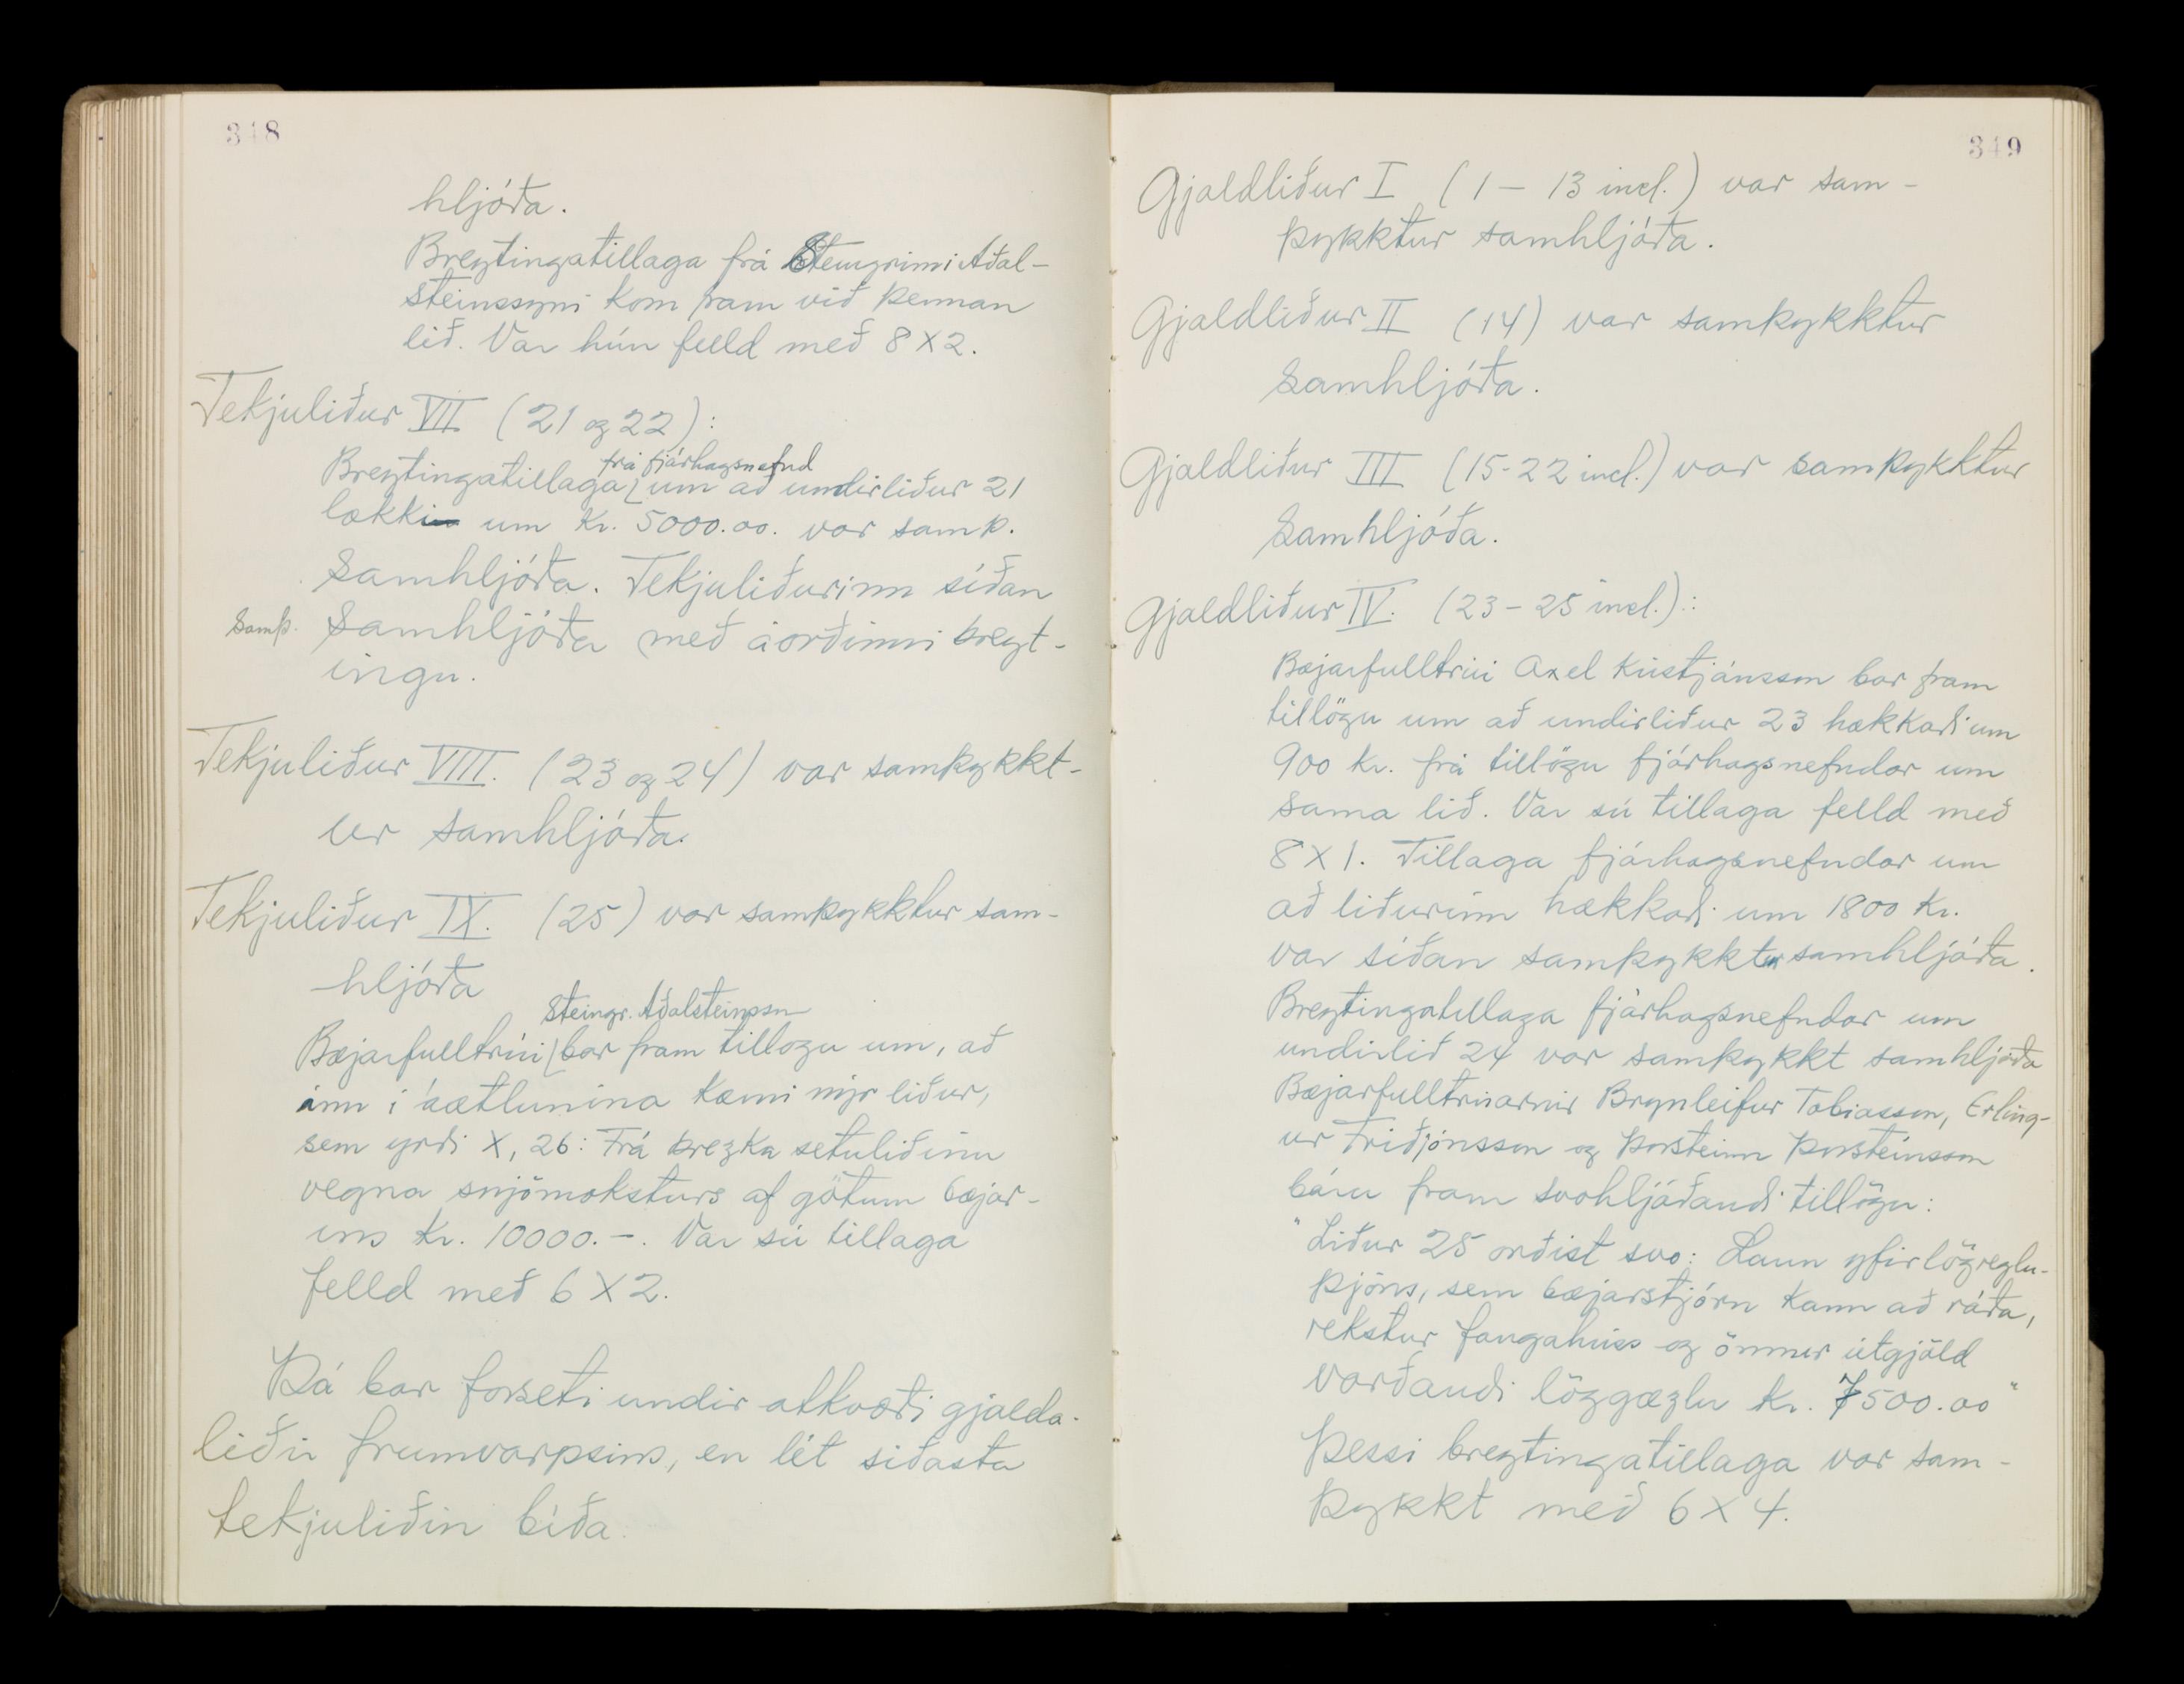 348
hljóða.
Breytingatillaga frá Steingrími Aðal-
steinssyni kom fram við þennan
lið. Var hún felld með 8 x 2.
Tekjuliður VII (21 og 22):
frá fjárhagsnefnd
Breytingatillaga um að undirliður 21
lækki um kr. 5000.00. var samþ.
samhljóða. Tekjuliðurinn síðan
samþ. samhljóða með áorðinni breyt-
ingu.
Tekjuliður VIII. (23 og 24) var samþykkt-
ur samhljóða.
Tekjuliður IX. (25) var samþykktur sam-
hljóða
Steingr. Aðalsteinsson
Bæjarfulltrúi bar fram tillögu um, að
inn í áætlunina kæmi nýr liður,
sem yrði X, 26: Frá brezka setuliðinu
vegna snjómoksturs af götum bæjar-
ins kr. 10000.-. Var sú tillaga
felld með 6 x 2.
Þá bar forseti undir atkvæði gjalda-
liði frumvarpsins, en lét síðasta
tekjuliðin bíða.
349
Gjaldliður I (1 — 13 incl.) var sam-
þykktur samhljóða.
Gjaldliður II (14) var samþykktur
samhljóða.
Gjaldliður III (15-22 incl.) var samþykktur
samhljóða.
Gjaldliður IV. (23 - 25 incl.):
Bæjarfulltrúi Axel Kristjánsson bar fram
tillögu um að undirliður 23 hækkaði um
900 kr. frá tillögu fjárhagsnefndar um
sama lið. Var sú tillaga felld með
8 x 1. Tillaga fjárhagsnefndar um
að liðurinn hækkaði um 1800 kr.
var síðan samþykkt samhljóða.
Breytingatillaga fjárhagsnefndar um
undirlið 24 var samþykkt samhljóða
Bæjarfulltrúarnir Brynleifur Tobiasson, Erling-
ur Friðjónsson og Þorsteinn Þorsteinsson
báru fram svohljóðandi tillögu:
"Liður 25 orðist svo: Laun yfirlögreglu-
þjóns, sem bæjarstjórn kann að ráða,
rekstur fangahúss og önnur útgjöld
varðandi löggæzlu kr. 7500.00"
Þessi breytingatillaga var sam-
þykkt með 6 x 4.